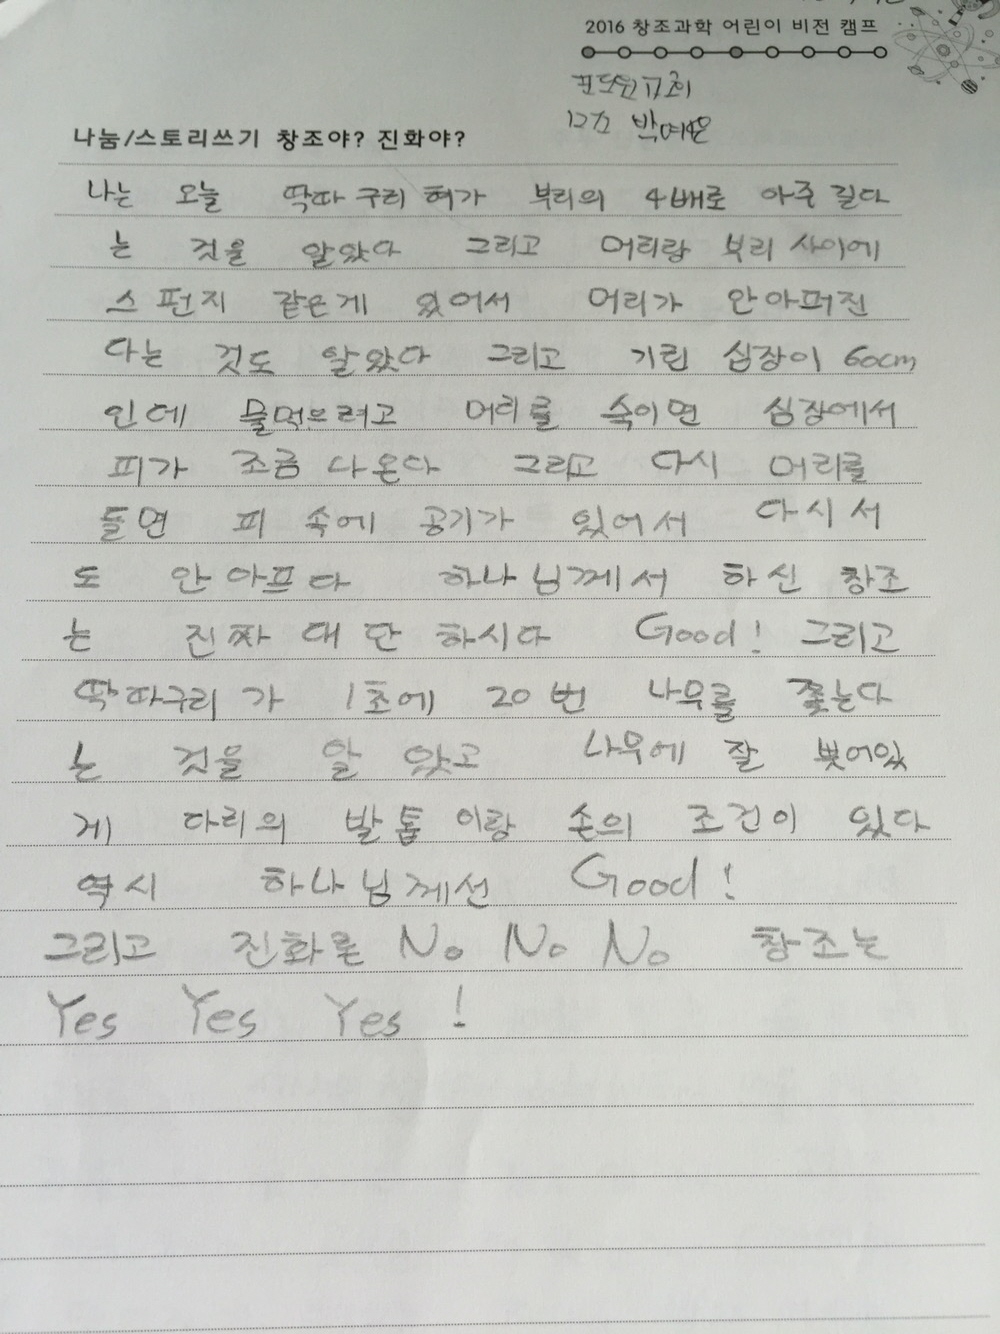 2016 창조과학 어린이 비전 캠프
포도원교회
12조 박예온
나눔/스토리쓰기 창조야? 진화야?
나는 오늘 딱따구리 혀가 부리의 4배로 아주 길다
는 것을 알았다 그리고 머리랑 부리 사이에
스펀지 같은게 있어서 머리가 안아퍼진
다는 것도 알았다 그리고 기린 심장이 60cm
인데 물먹으려고 머리를 숙이면 심장에서
피가 조금 나온다 그리고 다시 머리를
들면 피 속에 공기가 있어서 다시 서
도 안아프다 하나님께서 하신 창조
는 진짜 대단하시다 Good! 그리고
딱따구리가 1초에 20번 나무를 쫓는다
는 것을 알았고 나무에 잘 뻣어있
게 다리의 발톱이랑 손의 조건이 있다
역시 하나님께선 Good!
그리고 진화론 No No No 창조는
Yes Yes Yes !